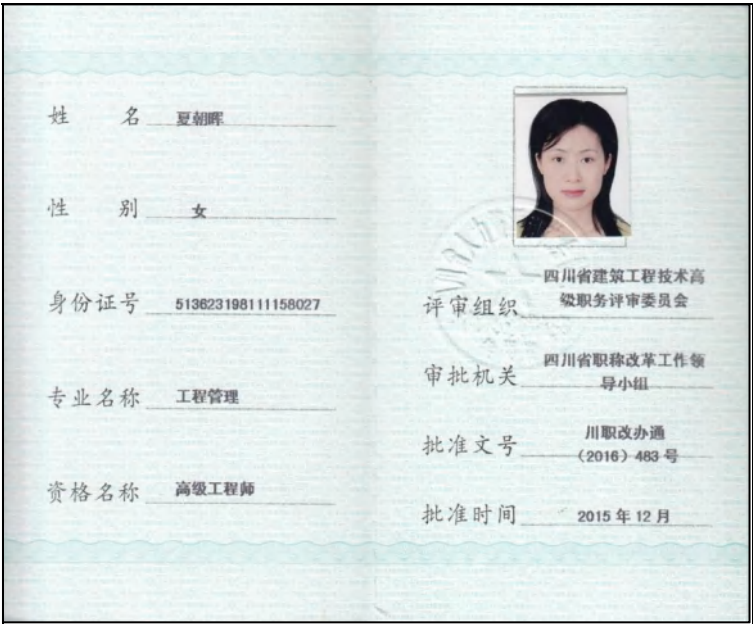 姓 名 夏朝晖
性 别 女
身份证号 513623198111158027
专业名称 工程管理
资格名称 高级工程师
评审组织 四川省建筑工程技术高
级职务评审委员会
审批机关 四川省职称改革工作领
导小组
批准文号 川职改办通
（2016）483 号
批准时间 2015 年 12 月